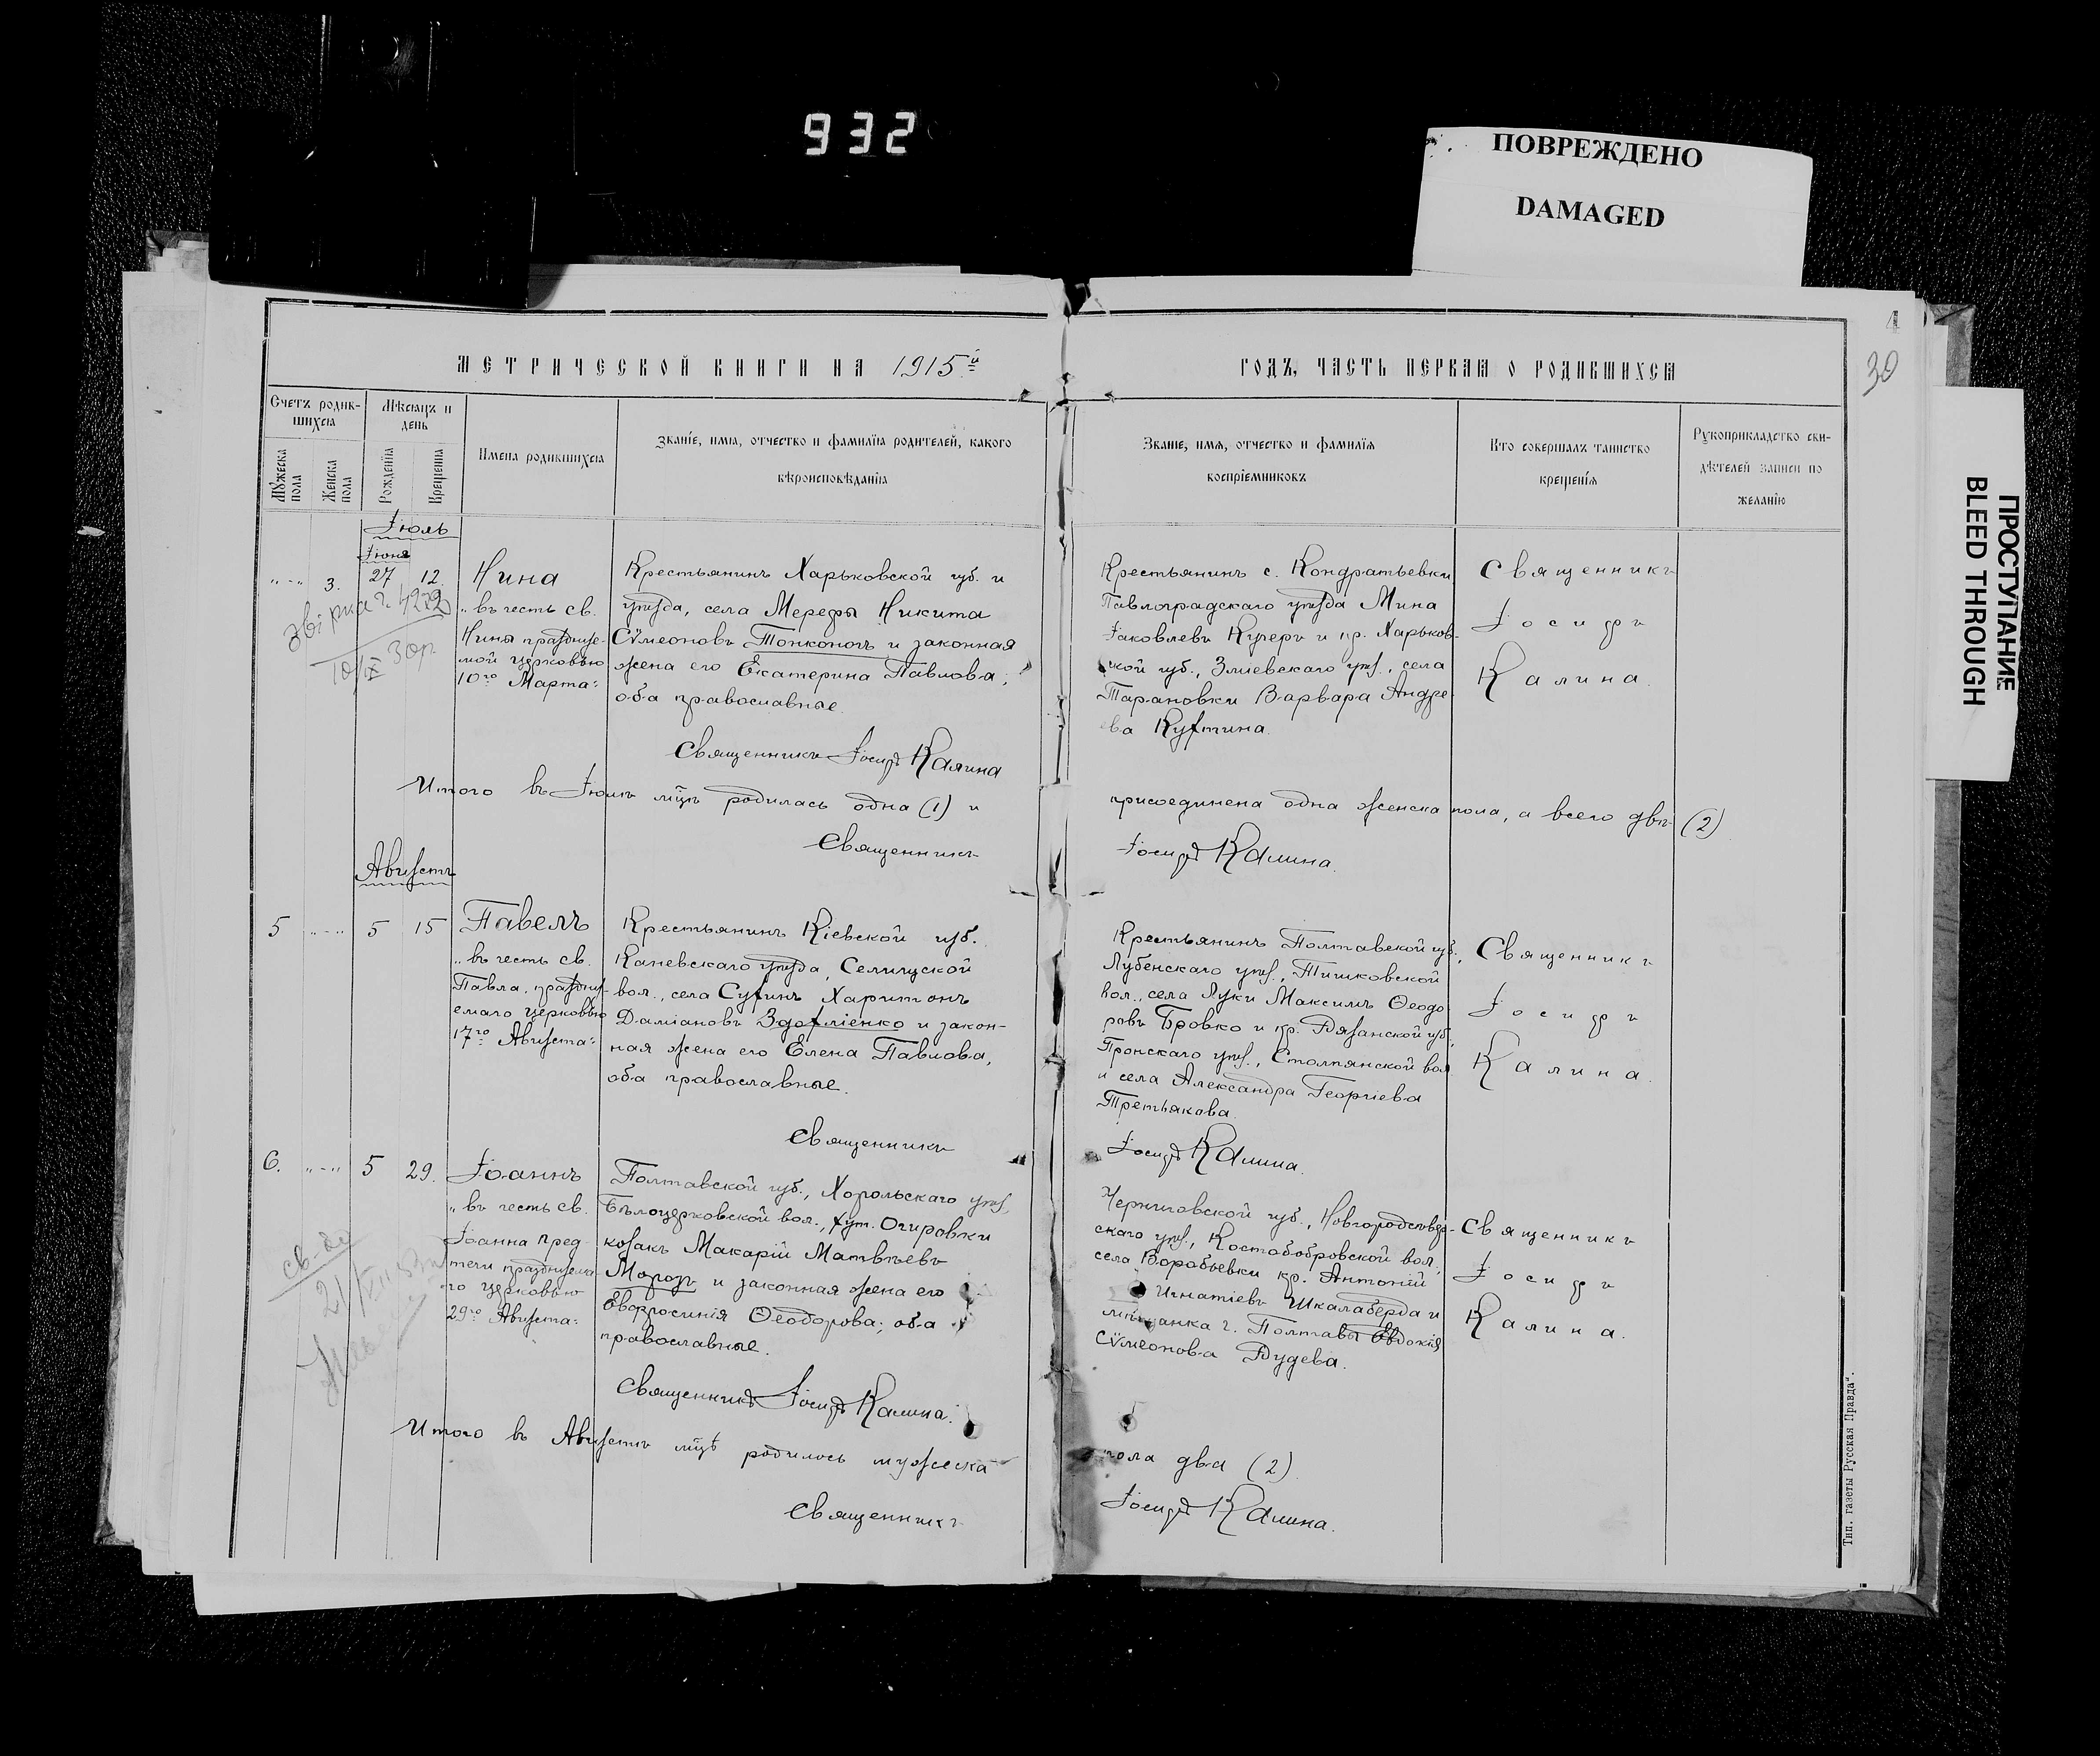 932
ПОВРЕЖДЕНО
DAMAGED
ПРОСТУПАНИЕ
BLEED THROUGH
30
МЕТРИЧЕСКОЙ КНИГИ НА 1915й
ГОДЪ, ЧАСТЬ ПЕРВАЯ О РОДИВШИХСЯ
Счетъ родив-
шихся
Мужеска
пола
Женска
пола
Мѣсяцъ и
день
Рожденія
Крещенія
Имена родившихся
Званіе, имя, отчество и фамилія родителей, какого
вѣроисповѣданія
Званіе, имя, отчество и фамилія
воспріемниковъ
Кто совершалъ таинство
крещенія
Рукоприкладство сви-
дѣтелей записи по
желанію
Іюль
Іюня
„ - „ 3. 27 12.
Нина
„ въ честь св.
Нины празднуе-
мой церковью
10го Марта:
Крестьянинъ Харьковской губ. и
уѣзда, села Мерефы Никита
Сѵмеоновъ Тонконогъ и законная
жена его Екатерина Павлова;
оба православные.
Священникъ Іосифъ Калина
Крестьянинъ с. Кондратьевки
Павлоградскаго уѣзда Мина
Іаковлевъ Кучеръ и кр. Харьков-
ской губ., Зміевскаго уѣз., села
Тарановки Варвара Андре-
ева Кузтина.
Священникъ
Іосифъ
Калина.
Итого въ Іюлѣ мцѣ родилась одна (1) и
присоединена одна женска пола, а всего двѣ (2)
Священникъ
Іосифъ Калина.
Августъ
5 „ - „ 5 15
Павелъ
„ въ честь св.
Павла, праздну-
емаго церковью
17го Августа:
Крестьянинъ Кіевской губ.
Каневскаго уѣзда, Селищской
вол., села Сухинъ Харитонъ
Даміановъ Здохліенко и закон-
ная жена его Елена Павлова,
оба православные.
Священникъ
Крестьянинъ Полтавской губ.,
Лубенскаго уѣз., Тишковской
вол., села Луки Максимъ Ѳеодо
ровъ Бровко и кр. Рязанской губ.,
Пронскаго уѣз., Столпянской вол
и села Александра Георгіева
Третьякова.
Іосифъ Калина.
Священникъ
Іосифъ
Калина.
6. „ - „ 5 29.
Іоаннъ
„ въ честь св.
Іоанна Пред-
течи празднуема-
го церковью
29го Августа:
Полтавской губ., Хорольскаго уѣз.
Бѣлоцерковской вол., хут. Огировки
козакъ Макарій Матвѣевъ
Морозъ и законная жена его
Евфросинія Ѳеодорова; оба
православные.
Священникъ Іосифъ Калина.
Черниговской губ., Новгородсѣвер-
скаго уѣз., Костобобровской вол.,
села Воробьевки кр. Антоній
Игнатіевъ Шкалаберда и
мѣщанка г. Полтавы Евдокія
Сѵмеонова Дудева.
Священникъ
Іосифъ
Калина.
Итого въ Августѣ мцѣ родилось мужеска
пола два (2).
Священникъ
Іосифъ Калина.
Тип. газеты Русская Правда".